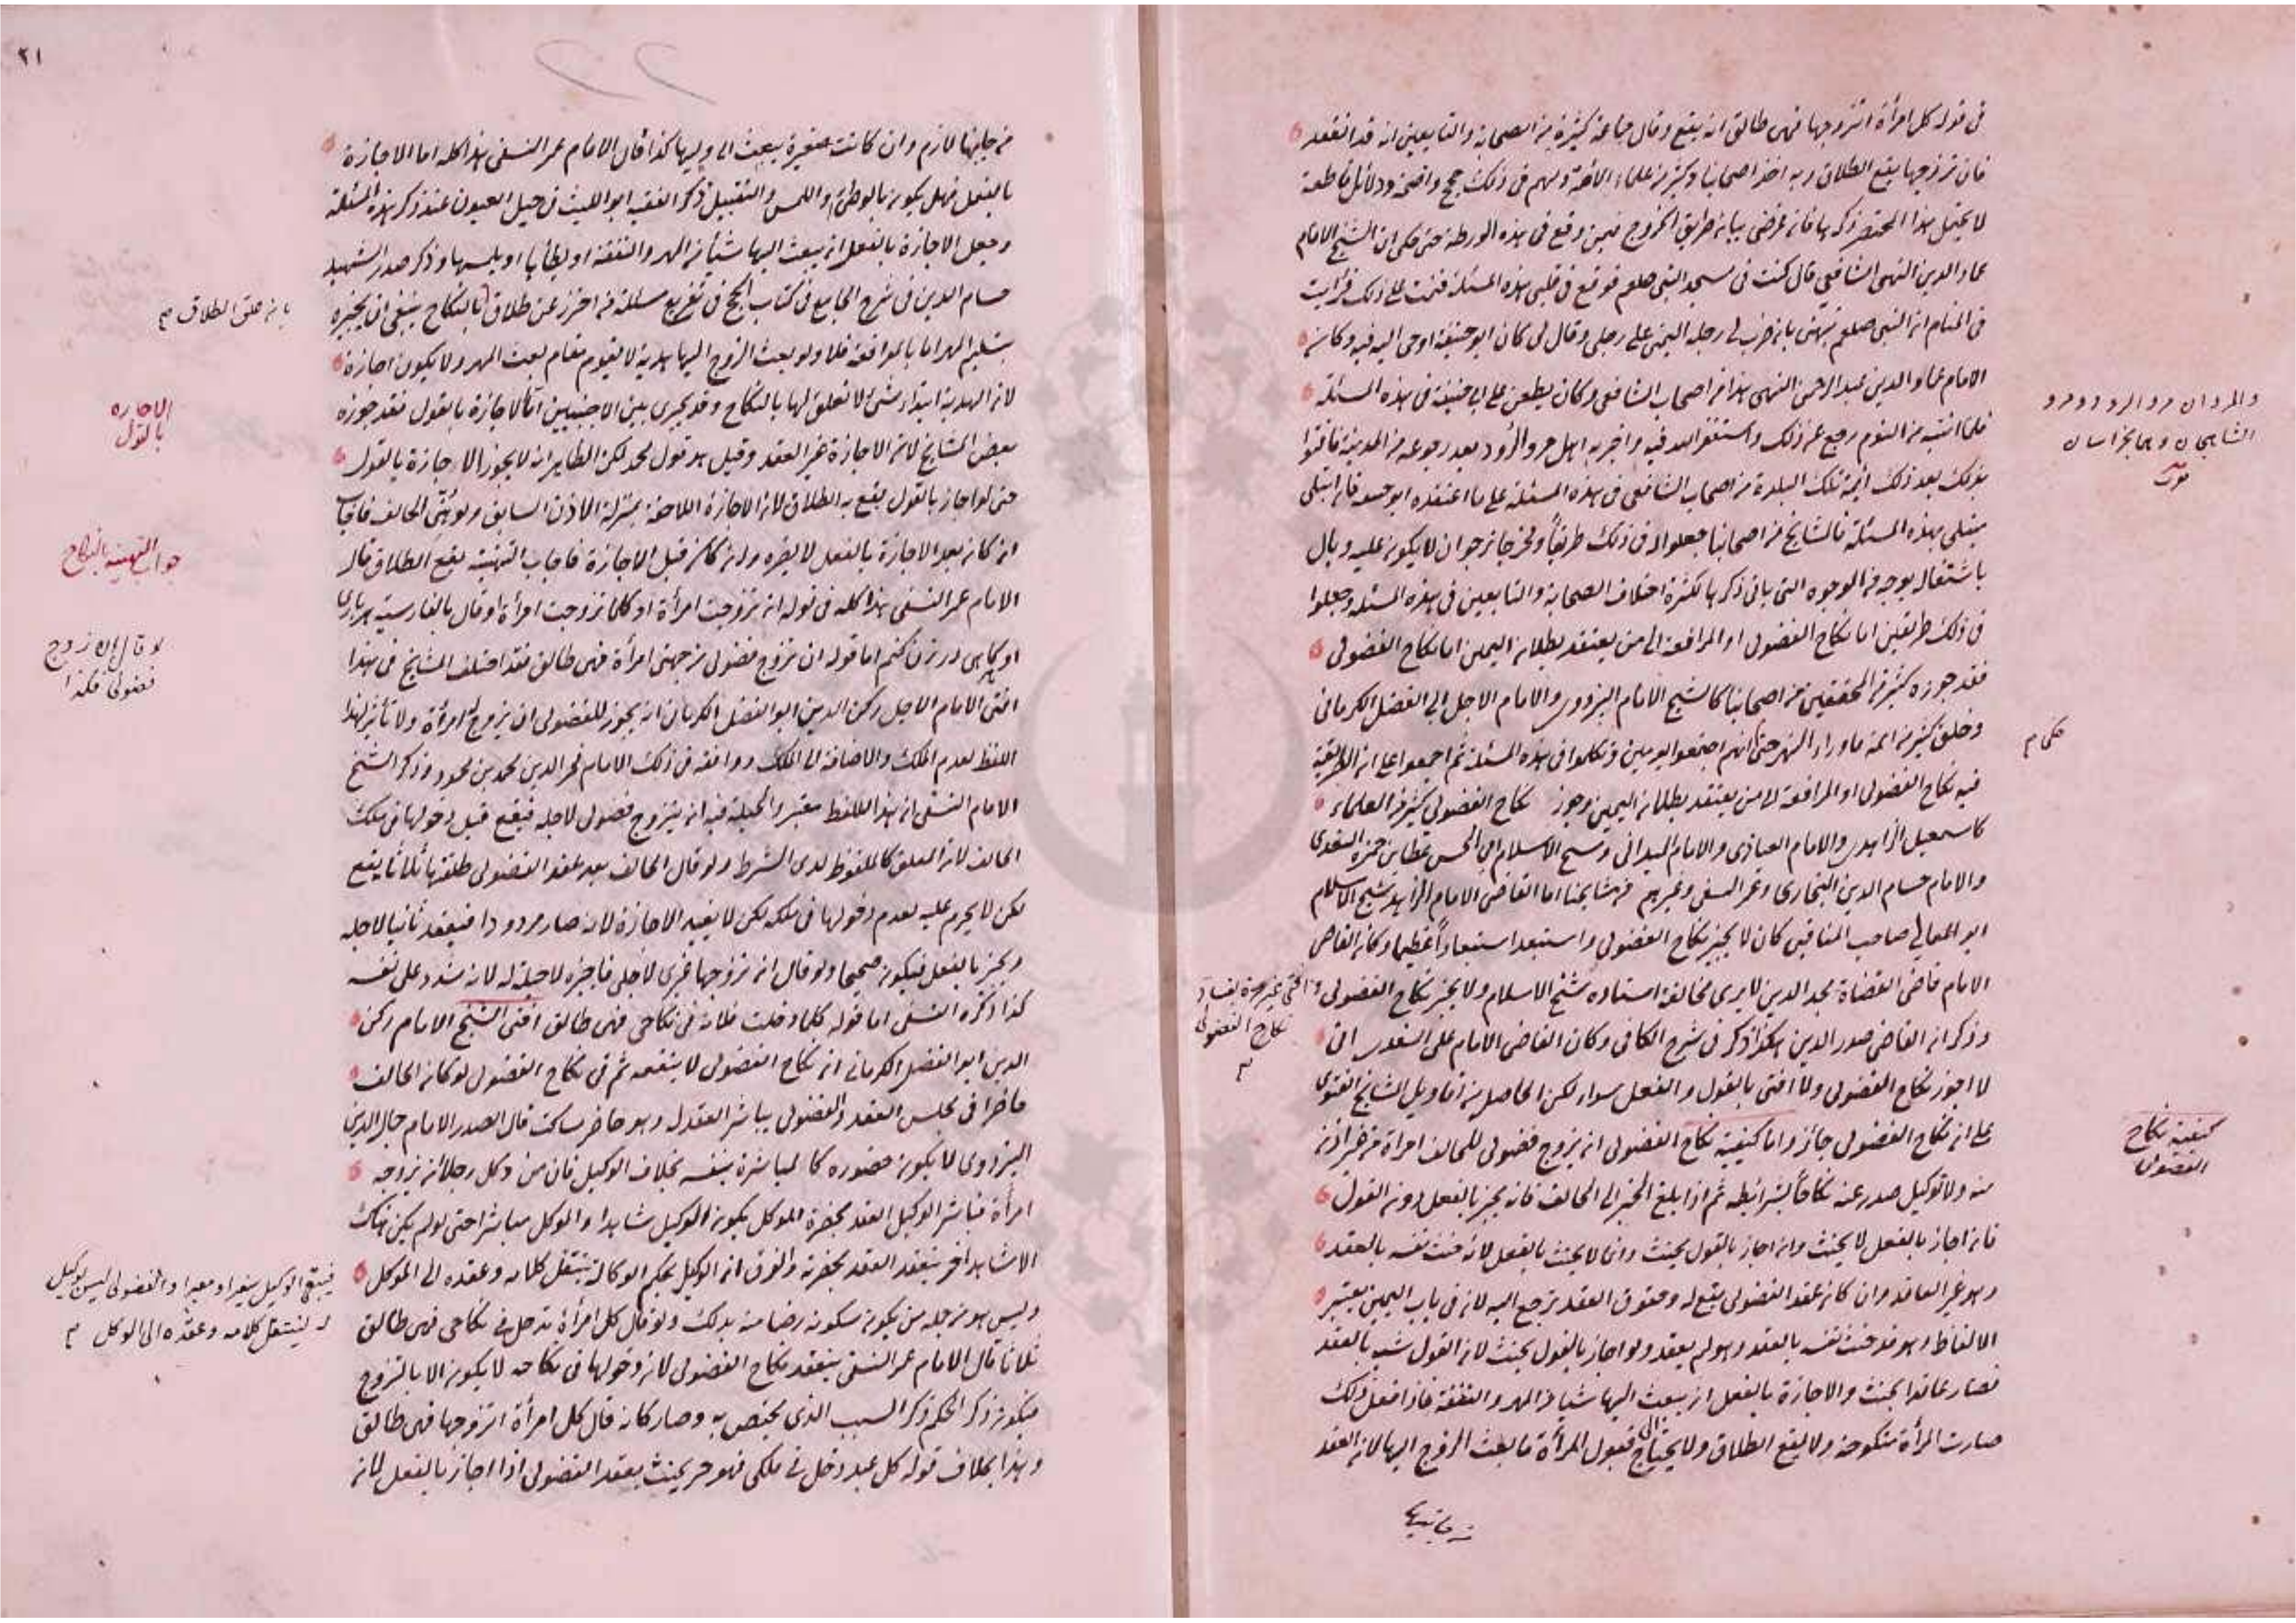 فى قوله كل امرأة اتزوجها فهى طالق انه يقع وقال جماعة كثيرة من الصحابة والتابعين انه قد انعقد
فان تزوجها يقع الطلاق وبه اخذ اصحابنا وكثير من علماء الائمة ولهم فى ذلك حجج واضحة ودلائل قاطعة
لا يحتمل هذا المختصر ذكرها فان غرضى بيان طريق الخروج فيمن وقع فى هذه الورطة حتى حكى ان الشيخ الامام
عماد الدين النهى الشافعى قال كنت فى مسجد النبى صلعم فوقع فى قلبى هذه المسئلة فنمت على ذلك فرأيت
فى المنام ان النبى صلعم نبهنى بان ضرب لى رجله اليمنى على رجلى وقال لى كان ابو حنيفة اوحى اليه فيه وكان
الامام عماد الدين عبد الرحمن النهى هذا من اصحاب الشافعى وكان يطعن على ابى حنيفة فى هذه المسئلة
فلما انتبه من النوم رجع عن ذلك واستغفر الله فيه واخبر به اهل مرو الرود بعد رجوعه من المدينة فافتوا
بذلك بعد ذلك ائمة تلك البلدة من اصحاب الشافعى فى هذه المسئلة على ما اعتقده ابو حنيفة فان ابتلى
مبتلى بهذه المسئلة فالمشايخ من اصحابنا جعلوا له فى ذلك طريقاً ومخرجا نرجو ان لا يكون عليه وبال
باشتغاله بوجه من الوجوه التى يأتى ذكرها لكثرة اختلاف الصحابة والتابعين فى هذه المسئلة وجعلوا
فى ذلك طريقين اما نكاح الفضولى او المرافعة الى من يعتقد بطلان اليمين اما نكاح الفضولى
فقد جوزه كثير من المحققين من اصحابنا كالشيخ الامام البزدوى والامام الاجل ابى الفضل الكرمانى
وخلق كثير من ائمة ماوراء النهر حتى انهم اجتمعوا يومين وتكلموا فى هذه المسئلة ثم اجمعوا على ان الطريقة
فيه نكاح الفضولى او المرافعة الى من يعتقد بطلان اليمين وجوز نكاح الفضولى كثير من العلماء
كاسمعيل الزاهدى والامام العياذى والامام الميدانى وشيخ الاسلام ابى الحسن عطا بن حمزه السغدى
والامام حسام الدين البخارى وعمر النسفى وغيرهم من مشايخنا اما القاضى الامام الزاهد شيخ الاسلام
ابو المعالى صاحب المناقب كان لا يجيز نكاح الفضولى واستبعد استبعاداً عظيما وكان القاضى
الامام قاضى القضاة مجد الدين لا يرى مخالفة استاده شيخ الاسلام ولا يجيز نكاح الفضولى
وذكر ان القاضى صدر الدين هكذا ذكر فى شرح الكافى وكان القاضى الامام على السغدى
لا اجوز نكاح الفضولى ولا افتى بالقول والفعل سواء لكن الحاصل من اقاويل المشايخ الفتوى
على ان نكاح الفضولى جائز واما كيفية نكاح الفضولى ان يزوج فضولى للحالف امرأة من غير اذن
منه ولا توكيل صدر عنه نكاحاً بشرائطه ثم اذا بلغ الخبر الى الحالف فانه يجيز بالفعل دون القول
فان اجاز بالفعل لا يحنث وان اجاز بالقول يحنث وانما لا يحنث بالفعل لان حنث نفسه بالعقد
وهو غير العاقد وان كان عقد الفضولى يقع له وحقوق العقد ترجع اليه لان فى باب اليمين يعتبر
الالفاظ وهو قد حنث نفسه بالعقد وهو لم يعقد ولو اجاز بالقول يحنث لان القول شبه بالعقد
فصار عاقدا يحنث والاجازة بالفعل ان يبعث اليها شيأ من المهر والنفقة فاذا فعل ذلك
صارت المرأة منكوحة ولا يقع الطلاق ولا يحتاج الى قبول المرأة ما بعث الزوج اليها لان العقد
من جانبها
والمروان مرو الرود ومرو
الشاهجان وهما بخراسان
حكى م
وافتى غير مرة بفساد
نكاح الفضولى
م
كيفية نكاح
الفضولى
٢١
من جانبها لازم وان كانت صغيرة يبعث الى وليها كذا قال الامام عمر النسفى هذا كله اما الاجازة
بالفعل فهل يكون بالوطئ واللمس والتقبيل ذكر الفقيه ابو الليث فى حيل العيون عند ذكر هذه المسئلة
وجعل الاجازة بالفعل ان يبعث اليها شيأ من المهر والنفقة او يطأها او يلمسها وذكر صدر الشهيد
حسام الدين فى شرح الجامع فى كتاب الحج فى تفريع مسئلة من احرز عن طلاق بالنكاح ينبغى ان يجيزه
بتسليم المهر اما بالمرافعة فلا ولو بعث الزوج اليها هدية لا يقوم مقام بعث المهر ولا يكون اجازة
لان الهدية ابتداء شئ لا تعلق لها بالنكاح وقد يجرى بين الاجنبيين اما الاجازة بالقول فقد جوزه
بعض المشايخ لان الاجازة غير العقد وقيل هو قول محمد لكن الظاهر انه لا يجوز الاجازة بالقول
حتى لو اجاز بالقول يقع به الطلاق لان الاجازة اللاحقة بمنزلة الاذن السابق ولو هنئ الحالف فاجاب
ان كان بعد الاجازة بالفعل لا يضره وان كان قبل الاجازة فاجاب التهنية يقع الطلاق قال
الامام عمر النسفى هذا كله فى قوله ان تزوجت امرأة او كلما تزوجت امرأة او قال بالفارسية هر بارى
او كاهى در زن كنم اما قوله ان تزوج فضولى من جهتى امرأة فهى طالق فقد اختلف المشايخ فى هذا
افتى الامام الاجل ركن الدين ابو الفضل الكرمان انه يجوز للفضولى ان يزوج له امرأة ولا تأثير لهذا
اللفظ لعدم الملك والاضافة الى الملك ووافقه فى ذلك الامام فخر الدين محمد بن محمود وذكر الشيخ
الامام النسفى ان هذا اللفظ معتبر والحيلة فيه ان يتزوج فضولى لاجله فيقع قبل دخولها فى ملك
الحالف لان المعلق كالملفوظ لدى الشرط ولو قال الحالف بعد عقد الفضولى طلقتها ثلاثا يقع
لكن لا يحرم عليه لعدم دخولها فى ملكه لكن لا يفيد الاجازة لانه صار مردودا فيعقد ثانيا لاجله
ويجيز بالفعل فيكون صحيحا ولو قال ان تزوجها غيرى لاجلى فاجيزه لا حيلة له لانه شدد على نفسه
كذا ذكره النسفى اما قوله كلما دخلت فلانة فى نكاحى فهى طالق افتى الشيخ الامام ركن
الدين ابو الفضل الكرمانى ان نكاح الفضولى لا ينفعه ثم فى نكاح الفضولى لو كان الحالف
حاضرا فى مجلس العقد والفضولى يباشر العقد له وهو حاضر ساكت قال الصدر الامام جمال الدين
البزدوى لا يكون حضوره كالمباشرة بنفسه بخلاف الوكيل فان من وكل رجلا ان يزوجه
امرأة فباشر الوكيل العقد بحضرة الموكل يكون الوكيل شاهدا والموكل مباشرا حتى لو لم يكن هناك
الا شاهد اخر ينعقد العقد بحضرته والفرق ان الوكيل بحكم الوكالة ينتقل كلامه وعقده الى الموكل
وليس هو من جملة من يكون سكوته رضا منه بذلك ولو قال كل امرأة تدخل فى نكاحى فهى طالق
ثلاثا قال الامام عمر النسفى ينعقد نكاح الفضولى لان دخولها فى نكاحه لا يكون الا بالتزوج
فيكون ذكر الحكم ذكر السبب الذى يختص به وصار كانه قال كل امرأة اتزوجها فهى طالق
وهذا بخلاف قوله كل عبد دخل فى ملكى فهو حر يحنث بعقد الفضولى اذا اجاز بالفعل لان
بان علق الطلاق م
الاجازه
بالقول
جواب التهنية بالنكاح
لو قال ان زوج
فضولى فكذا
فيبقى الوكيل سفيرا ومعبرا والفضولى ليس بوكيل
له لينتقل كلامه وعقده الى الموكل م